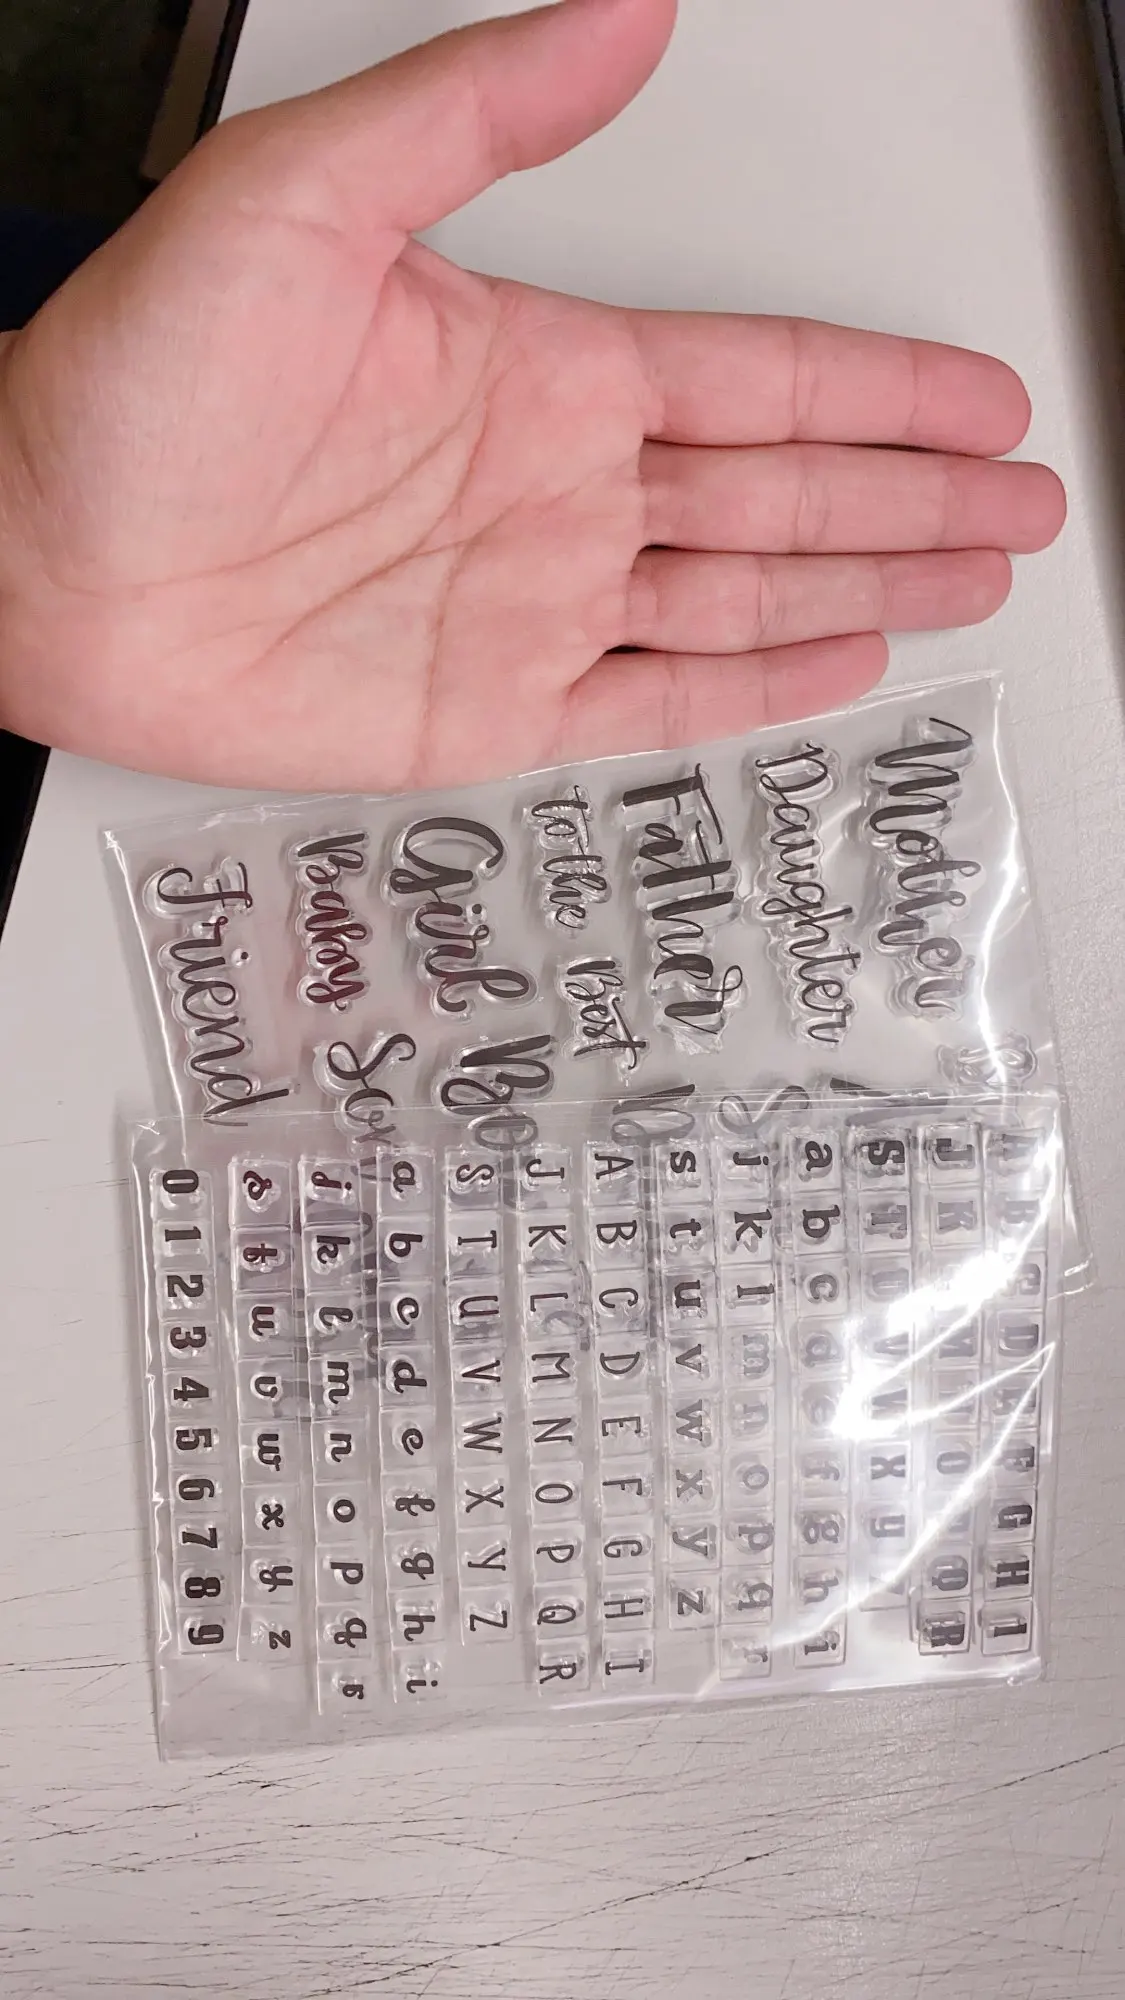 Mother
Daughter
Father
to the Best
Girl
Baby Son
Friend
A B C D E F G H I
J K L M N O P Q R
S T U V W X Y Z
a b c d e f g h i
j k l m n o p q r
s t u v w x y z
A B C D E F G H I
J K L M N O P Q R
S T U V W X Y Z
a b c d e f g h i
j k l m n o p q r
s t u v w x y z
0 1 2 3 4 5 6 7 8 9